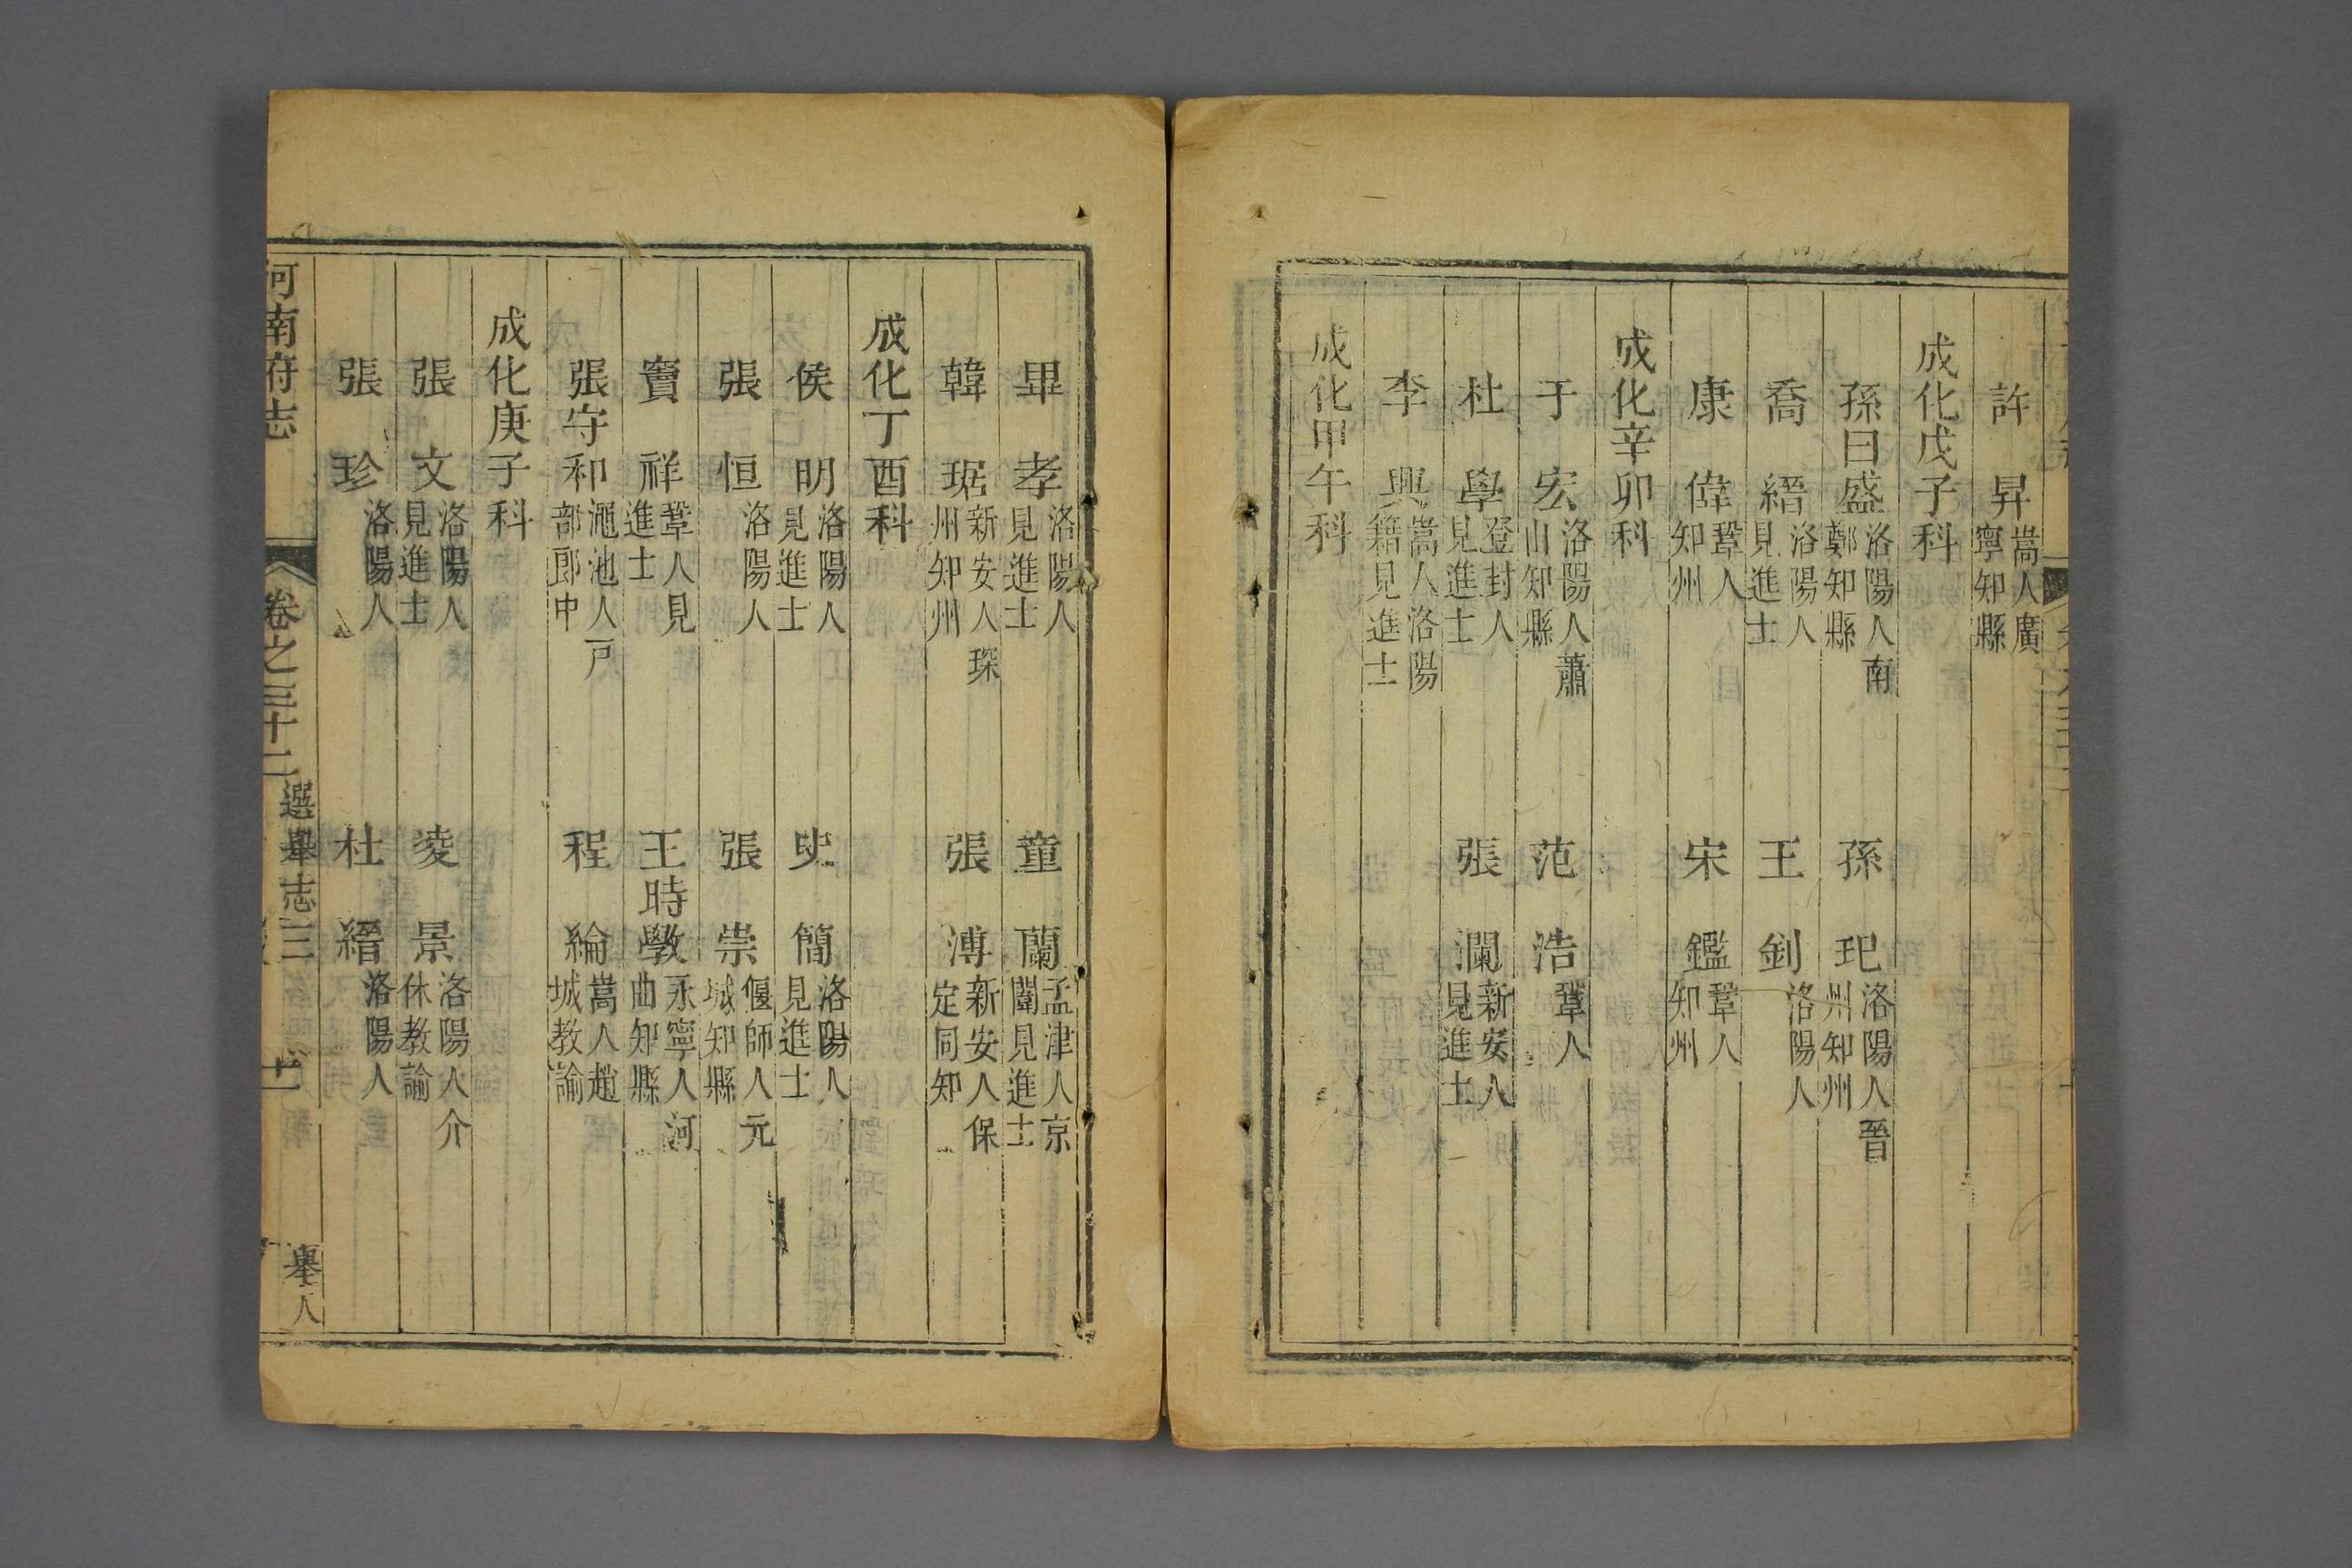 許昇嵩人廣寧知縣
成化戊子科
孫曰盛洛陽人南鄭知縣 孫玘洛陽人晉州知州
喬縉洛陽人見進士 王釗洛陽人
康偉鞏人知州 宋鑑鞏人知州
成化辛卯科
于宏洛陽人蕭山知縣 范浩鞏人
杜學登封人見進士 張瀾新安人見進士
李興嵩人洛陽籍見進士
成化甲午科
畢孝洛陽人見進士 童蘭孟津人京闈見進士
韓琚新安人琛州知州 張溥新安人保定同知
成化丁酉科
侯明洛陽人見進士 史簡洛陽人見進士
張恒洛陽人 張崇偃師人元城知縣
竇祥鞏人見進士 王時斆永寧人河曲知縣
張守和澠池人戸部郎中 程綸嵩人趙城教諭
成化庚子科
張文洛陽人見進士 凌景洛陽人介休教諭
張珍洛陽人 杜縉洛陽人
河南府志 卷之三十二 選舉志三 舉人